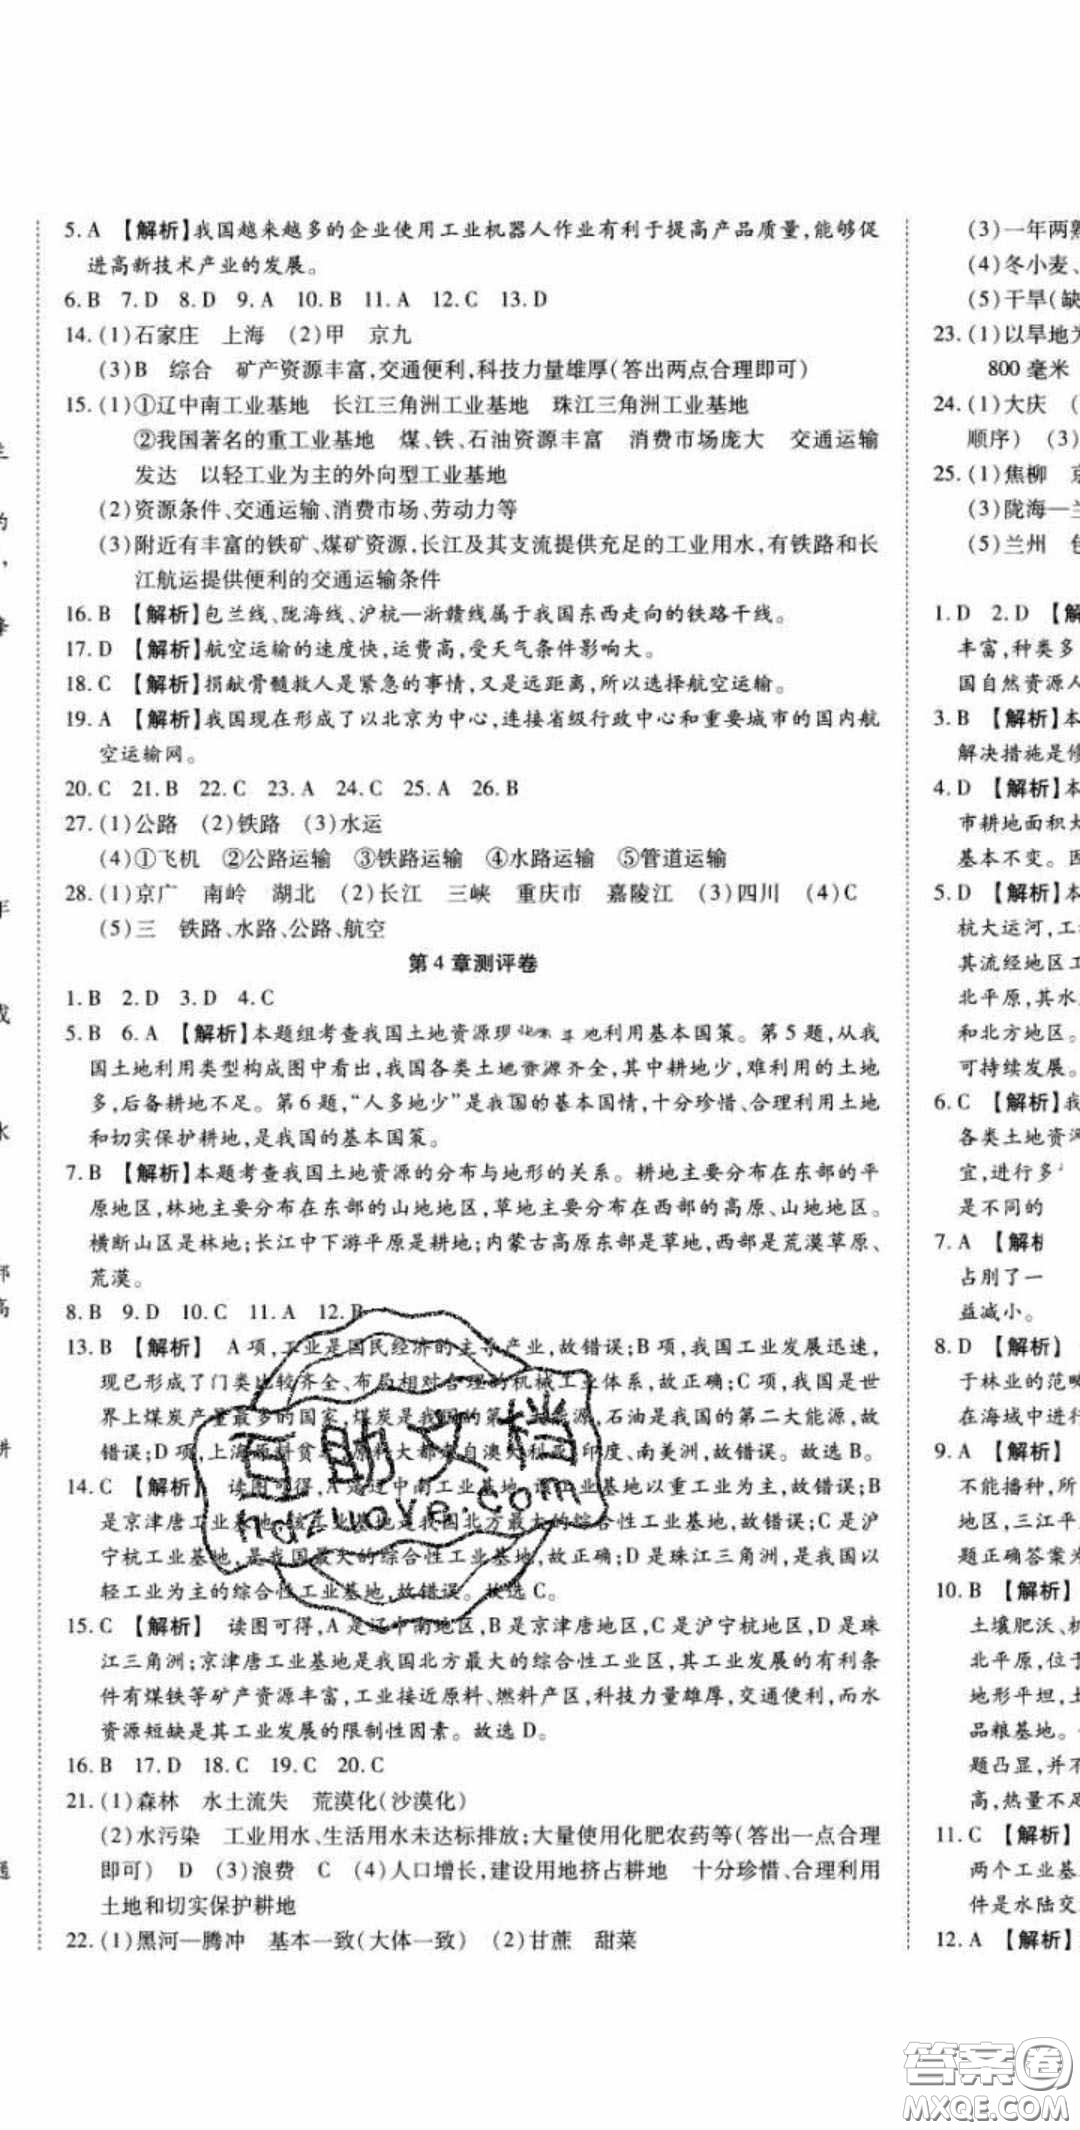 5. A 【解析】我国越来越多的企业使用工业机器人作业有利于提高产品质量,能够促
进高新技术产业的发展。
6. B 7. D 8. D 9. A 10. B 11. A 12. C 13. D
14. (1)石家庄 上海 (2)甲 京九
(3)B 综合 矿产资源丰富,交通便利,科技力量雄厚(答出两点合理即可)
15. (1)①辽中南工业基地 长江三角洲工业基地 珠江三角洲工业基地
②我国著名的重工业基地 煤、铁、石油资源丰富 消费市场庞大 交通运输
发达 以轻工业为主的外向型工业基地
(2)资源条件、交通运输、消费市场、劳动力等
(3)附近有丰富的铁矿、煤矿资源,长江及其支流提供充足的工业用水,有铁路和长
江航运提供便利的交通运输条件
16. B 【解析】包兰线、陇海线、沪杭—浙赣线属于我国东西走向的铁路干线。
17. D 【解析】航空运输的速度快,运费高,受天气条件影响大。
18. C 【解析】捐献骨髓救人是紧急的事情,又是远距离,所以选择航空运输。
19. A 【解析】我国现在形成了以北京为中心,连接省级行政中心和重要城市的国内航
空运输网。
20. C 21. B 22. C 23. A 24. C 25. A 26. B
27. (1)公路 (2)铁路 (3)水运
(4)①飞机 ②公路运输 ③铁路运输 ④水路运输 ⑤管道运输
28. (1)京广 南岭 湖北 (2)长江 三峡 重庆市 嘉陵江 (3)四川 (4)C
(5)三 铁路、水路、公路、航空
第4章测评卷
1. B 2. D 3. D 4. C
5. B 6. A 【解析】本题组考查我国土地资源现 地利用基本国策。第5题,从我
国土地利用类型构成图中看出,我国各类土地资源齐全,其中耕地少,难利用的土地
多,后备耕地不足。第6题,“人多地少”是我国的基本国情,十分珍惜、合理利用土地
和切实保护耕地,是我国的基本国策。
7. B 【解析】本题考查我国土地资源的分布与地形的关系。耕地主要分布在东部的平
原地区,林地主要分布在东部的山地地区,草地主要分布在西部的高原、山地地区。
横断山区是林地;长江中下游平原是耕地;内蒙古高原东部是草地,西部是荒漠草原、
荒漠。
8. B 9. D 10. C 11. A 12. B
13. B 【解析】 A项,工业是国民经济的主导产业,故错误;B项,我国工业发展迅速,
现已形成了门类比较齐全、布局相对合理的机械工业体系,故正确;C项,我国是世
界上煤炭产量最多的国家,煤炭是我国的第一大能源,石油是我国的第二大能源,故
错误;D项,上海 原料大都 自澳大利亚、印度、南美洲,故错误。故选B。
14. C 【解析】 读图可得,A是辽中南工业基地,该工业基地以重工业为主,故错误;B
是京津唐工业基地,该工业基地是我国北方最大的综合性工业基地,故错误;C是沪
宁杭工业基地,是我国最大的综合性工业基地,故正确;D是珠江三角洲,是我国以
轻工业为主的综合性工业基地,故错误。故选C。
15. C 【解析】 读图可得,A是辽中南地区,B是京津唐地区,C是沪宁杭地区,D是珠
江三角洲;京津唐工业基地是我国北方最大的综合性工业区,其工业发展的有利条
件有煤铁等矿产资源丰富,工业接近原料、燃料产区,科技力量雄厚,交通便利,而水
资源短缺是其工业发展的限制性因素。故选D。
16. B 17. D 18. C 19. C 20. C
21. (1)森林 水土流失 荒漠化(沙漠化)
(2)水污染 工业用水、生活用水未达标排放;大量使用化肥农药等(答出一点合理
即可) D (3)浪费 C (4)人口增长,建设用地挤占耕地 十分珍惜、合理利用
土地和切实保护耕地
22. (1)黑河—腾冲 基本一致(大体一致) (2)甘蔗 甜菜
(3)一年两熟
(4)冬小麦、
(5)干旱(缺
23. (1)以旱地
800毫米
24. (1)大庆 (
顺序) (3)
25. (1)焦柳
(3)陇海—兰
(5)兰州
1. D 2. D 【解
丰富,种类多
国自然资源人
3. B 【解析】本
解决措施是修
4. D 【解析】本
市耕地面积大
基本不变。因
5. D 【解析】本
杭大运河,工
其流经地区工
北平原,其水
和北方地区。
可持续发展。
6. C 【解析】我
各类土地资源
宜,进行多
是不同的
7. A 【解析
占用了一
益减小。
8. D 【解析】
于林业的范畴
在海域中进行
9. A 【解析】
不能播种,所
地区,三江平
题正确答案为
10. B 【解析】
土壤肥沃、机
北平原,位于
地形平坦,土
品粮基地。
题凸显,并不
高,热量不足
11. C 【解析】
两个工业基
件是水陆交
12. A 【解析】
互助文档
hdzuoye.com
答案圈
MXQE.COM